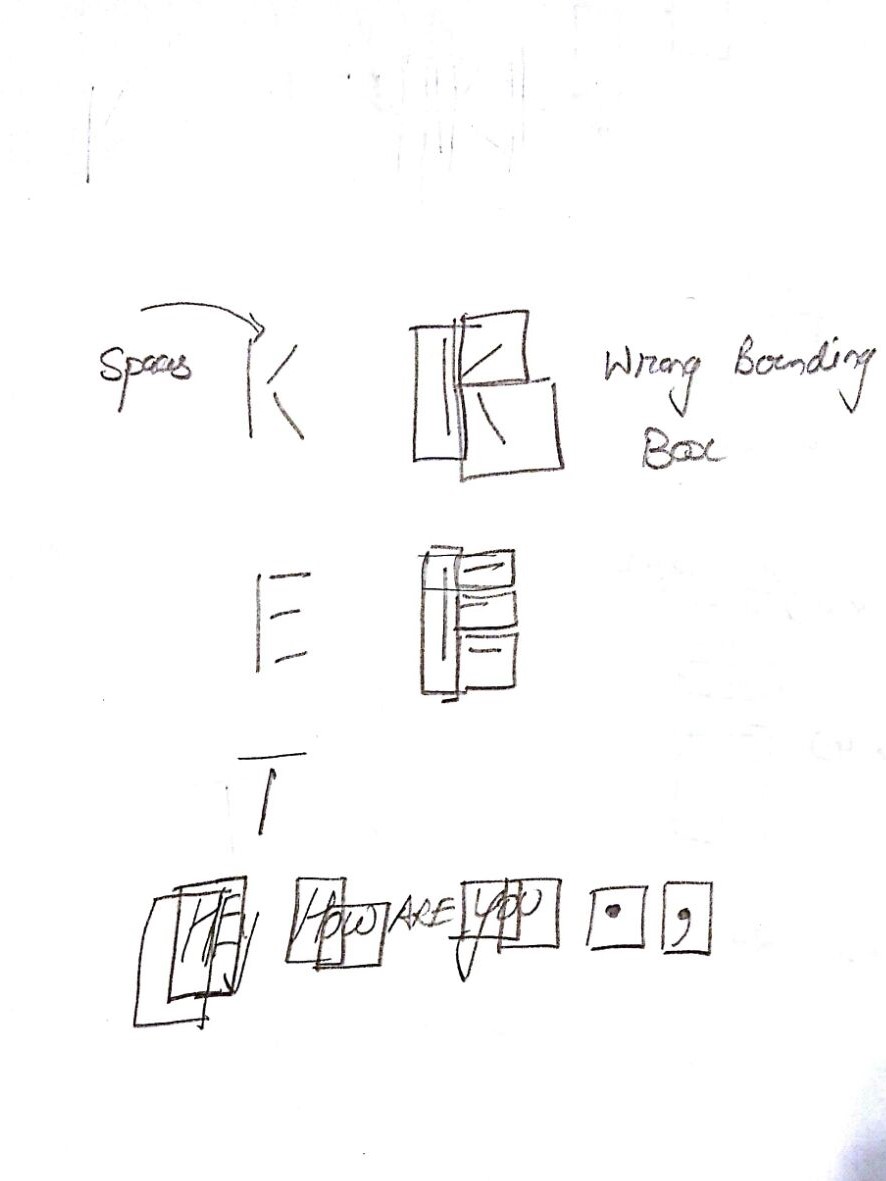 Spaces K K Wrong Bounding
Box
E E
T
HEy How ARE you . ,